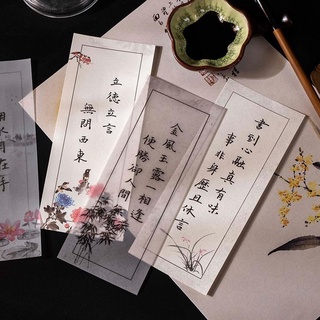 書到心融真有味
事非身歷且休言
金風玉露一相逢
便勝卻人間
立德立言
無問西東
水月在手